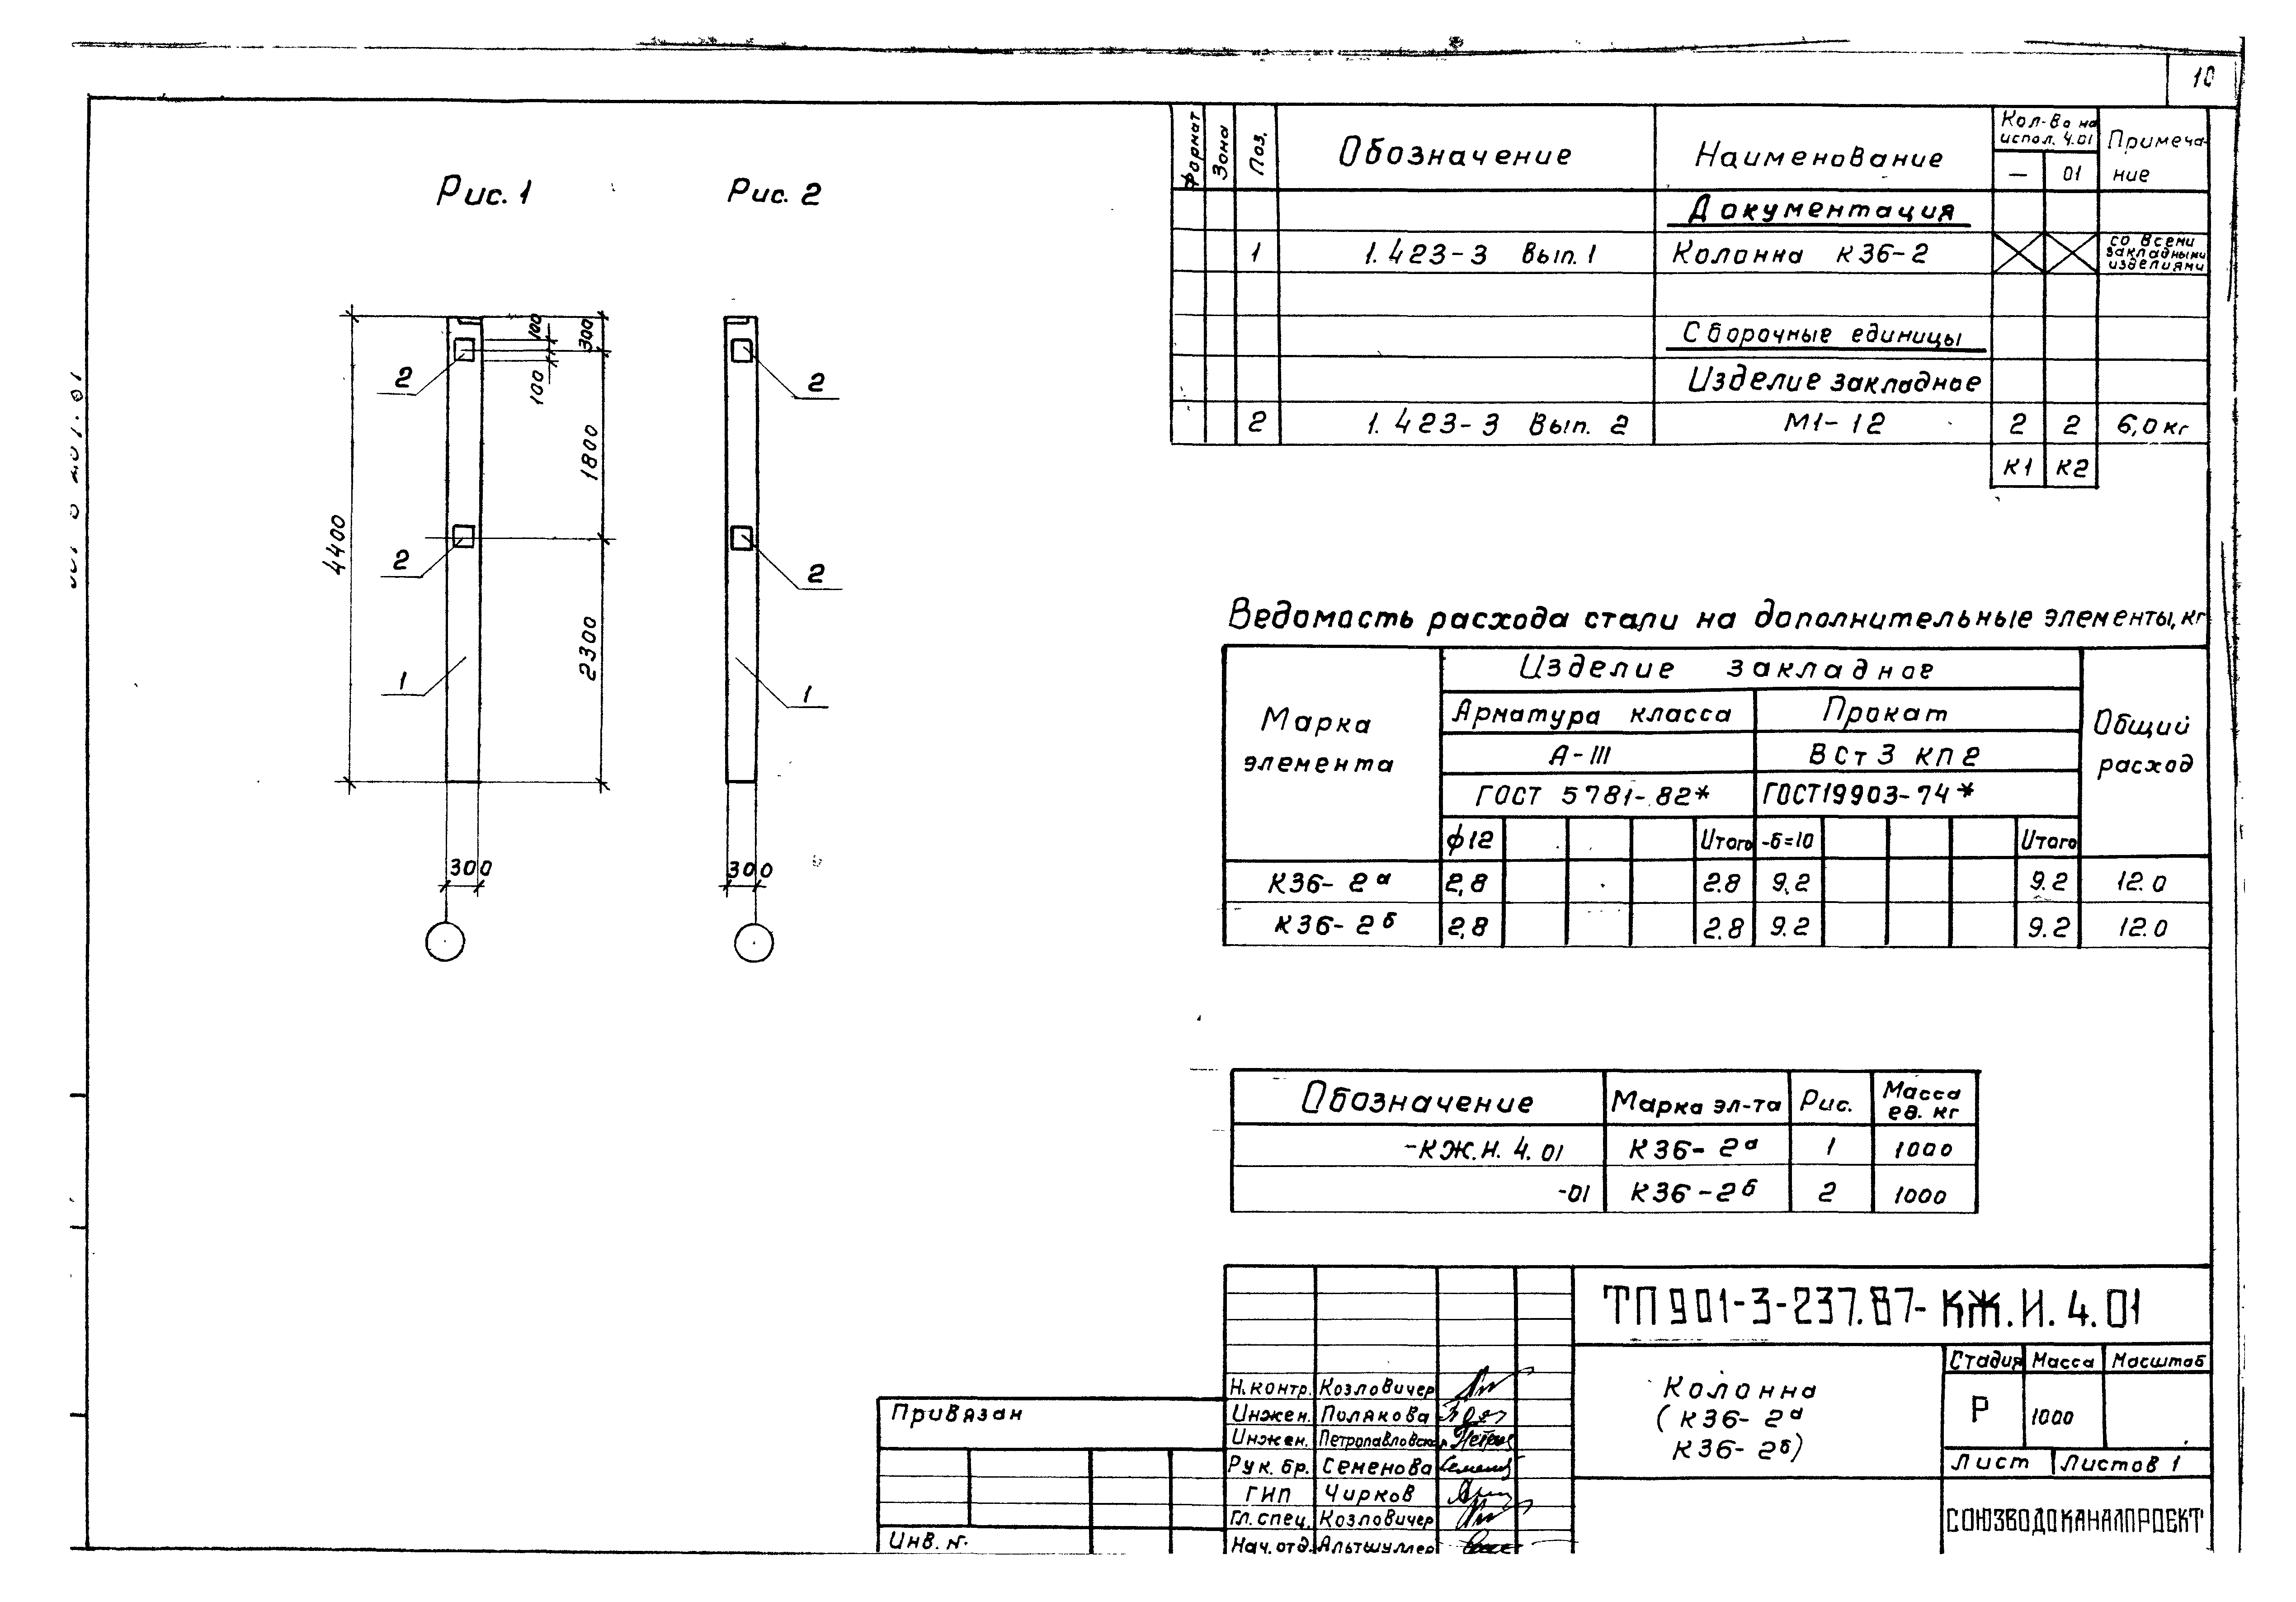 10
Рис. 1
Рис. 2
100
300
2
100
2
1800
4400
2
2
2300
1
1
300
300
Формат
Зона
Поз.
Обозначение
Наименование
Кол-во на испол. 4.01
Примеча-
—
01
ние
Документация
1
1.423-3 Вып. 1
Колонна К36-2
со всеми закладными изделиями
Сборочные единицы
Изделие закладное
2
1.423-3 Вып. 2
М1-12
2
2
6,0 кг
К1
К2
Ведомость расхода стали на дополнительные элементы, кг
Марка элемента
Изделие закладное
Общий расход
Арматура класса
Прокат
А-III
ВСт3 кп2
ГОСТ 5781-82*
ГОСТ19903-74*
ф12
Итого
-б=10
Итого
К36-2а
2,8
2.8
9.2
9.2
12.0
К36-2б
2,8
2.8
9.2
9.2
12.0
Обозначение
Марка эл-та
Рис.
Масса ед. кг
-КЖ.И. 4.01
К36-2а
1
1000
-01
К36-2б
2
1000
ТП 901-3-237.87-КЖ.И.4.01
Колонна
(К36-2а
К36-2б)
Стадия
Масса
Масштаб
Р
1000
Лист
Листов 1
СОЮЗВОДОКАНАЛПРОЕКТ
Н.контр. Козловичер
Инжен. Полякова
Инжен. Петропавловская
Рук. бр. Семенова
ГИП Чирков
Гл. спец. Козловичер
Нач. отд. Альтшуллер
Привязан
Инв. №